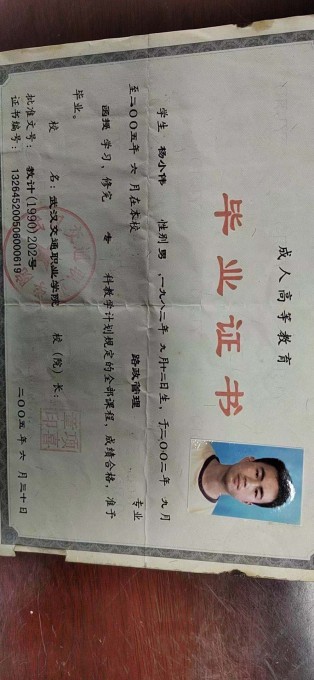 成人高等教育
毕业证书
学生 杨小伟 性别 男 ,一九八二年 九月十二日生,于二〇〇二年 九月
至二〇〇五年 六月在本校 路政管理 专业
函授 学习,修完 专 科教学计划规定的全部课程,成绩合格,准予
毕业。
校 名:武汉交通职业学院 校(院)长:
批准文号:教计(1990)202号
证书编号:132645200506000619 二〇〇五年 六月三十日